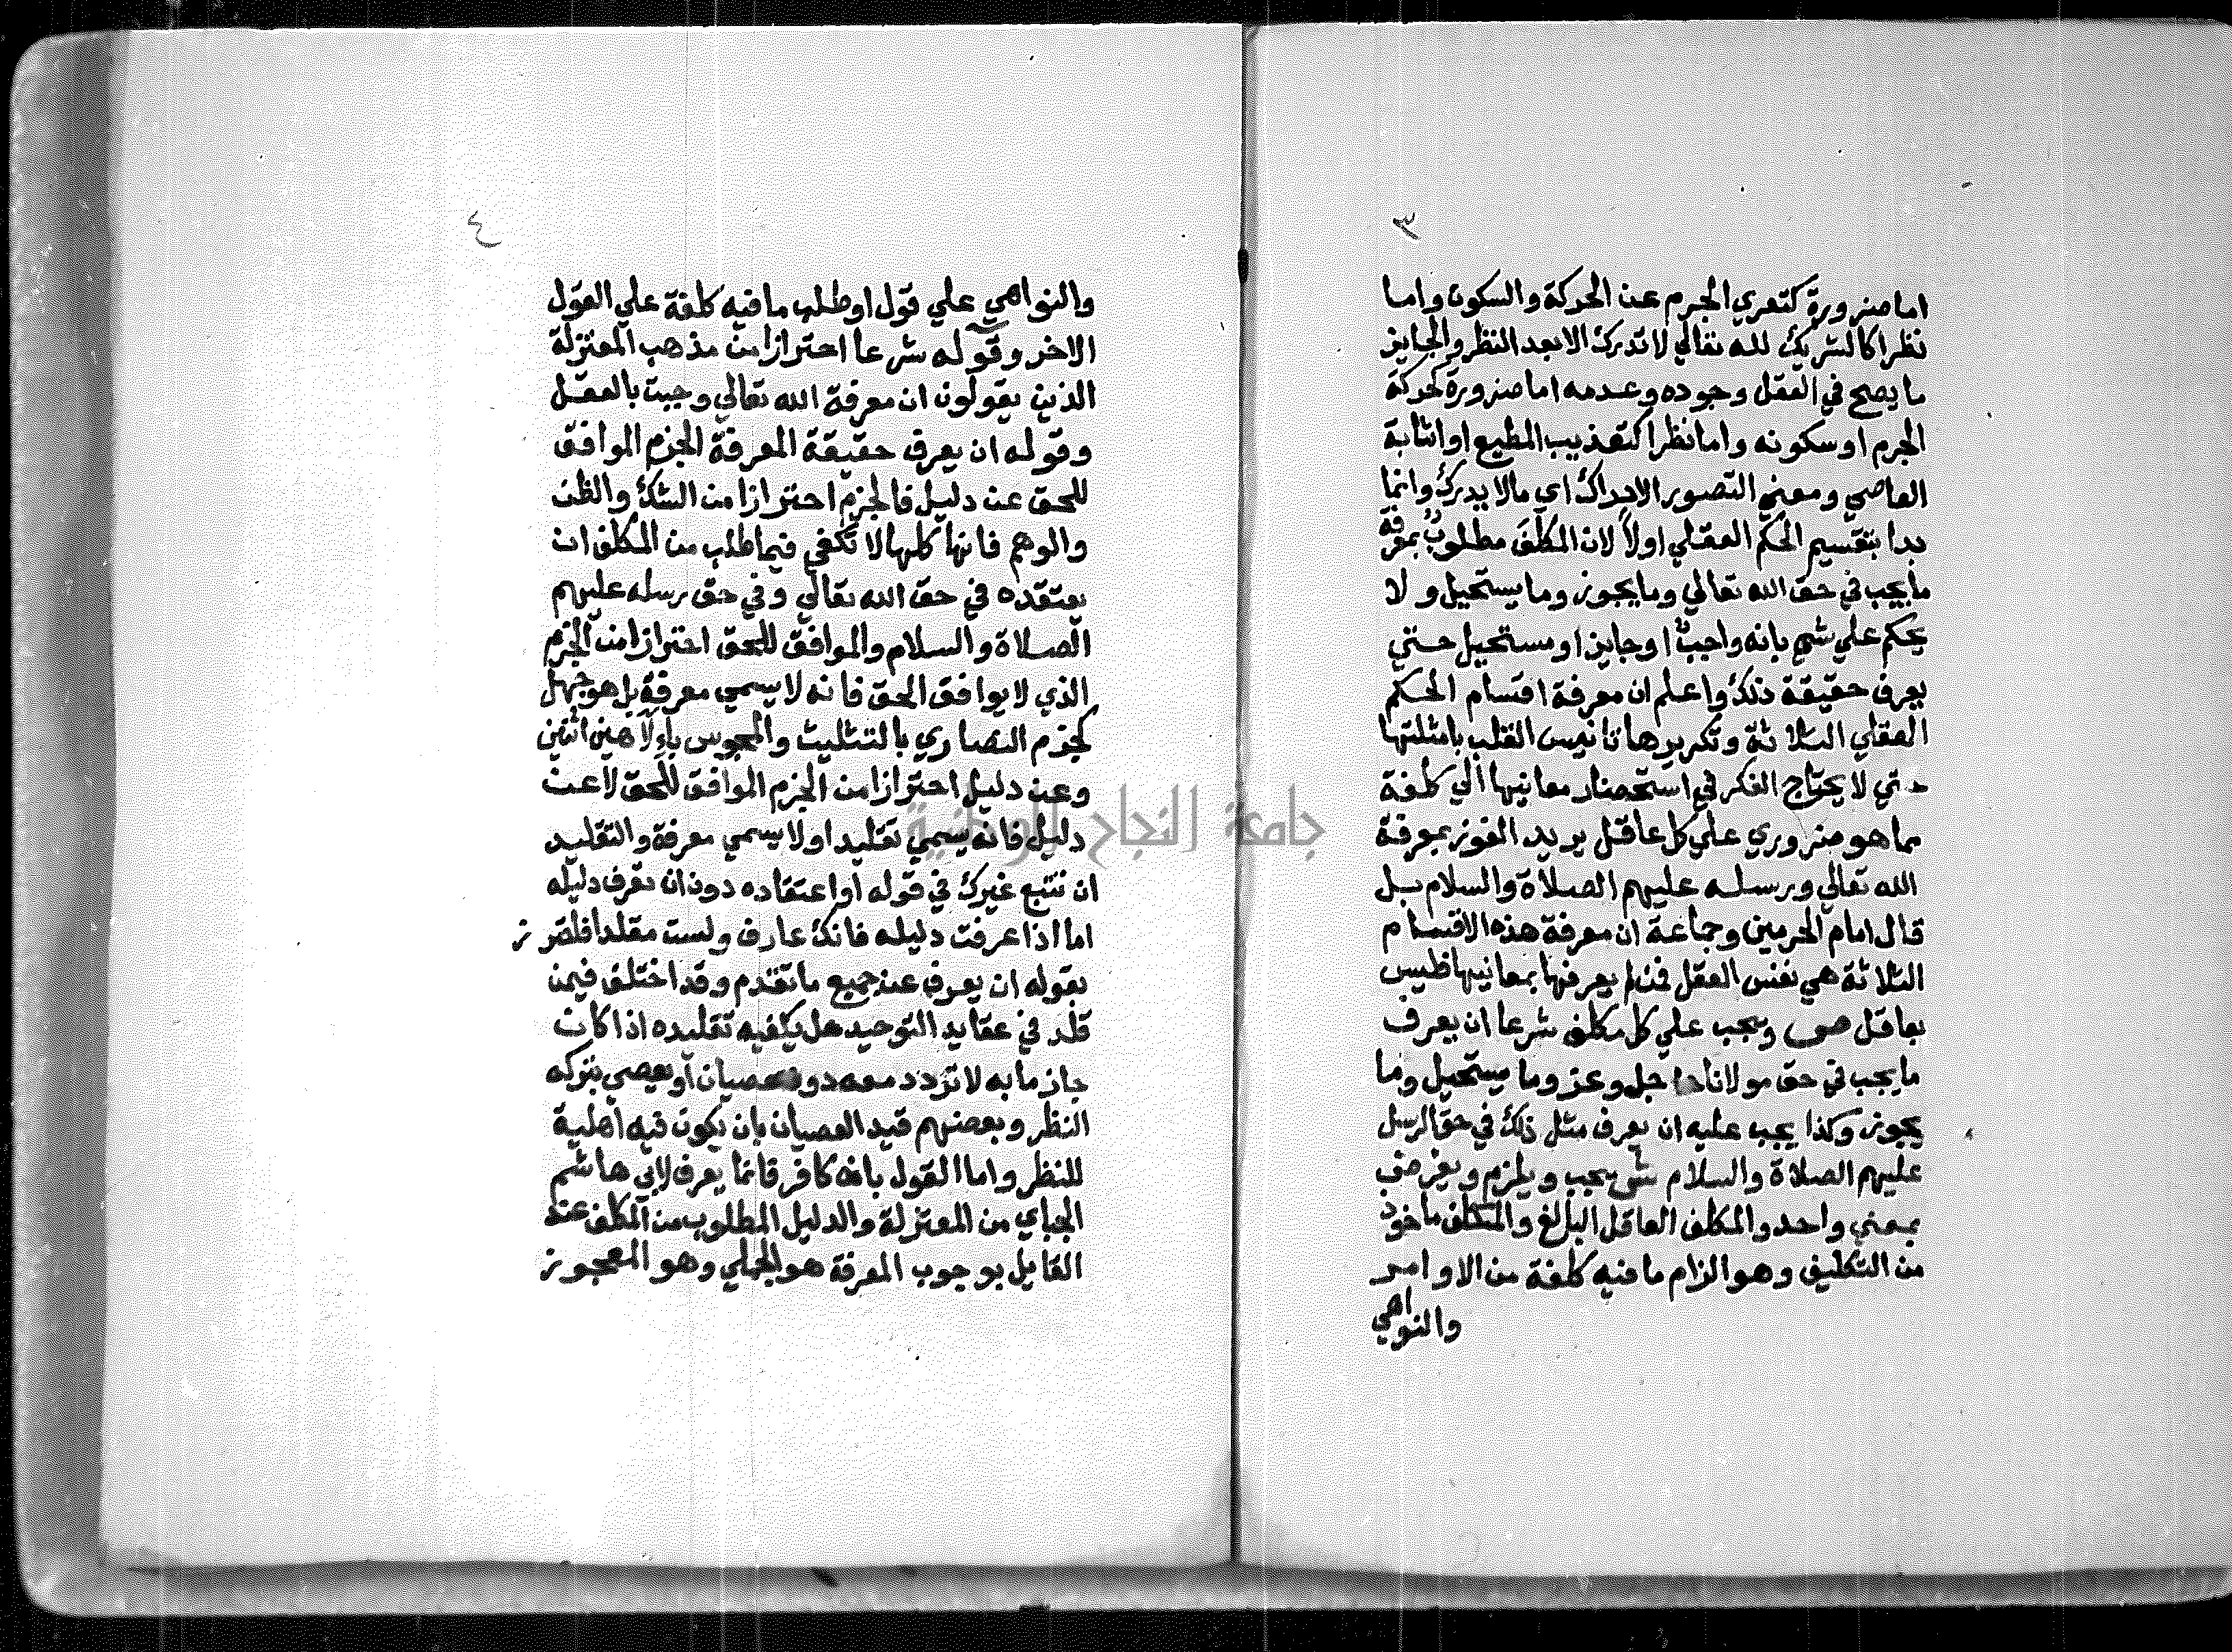 ٣
اما ضرورة كتعري الجرم عن الحركة والسكون واما
نظرا كالشريك لله تعالي لا تدرك الا بعد النظر والجايز
ما يصح في العقل وجوده وعدمه اما ضرورة كحركة
الجرم او سكونه واما نظرا كتعذيب المطيع او اثابة
العاصي ومعني التصور الادراك اي مالا يدرك وانما
بدا بتقسيم الحكم العقلي اولاً لان المكلف مطلوبٌ بمعرفة
ما يجب في حق الله تعالي وما يجوز وما يستحيل ولا
يحكم علي شي بانه واجبٌ او جايز او مستحيل حتي
يعرف حقيقة ذلك واعلم ان معرفة اقسام الحكم
العقلي الثلاثة وتكريرها تانيس القلب بامثلتها
حتي لا يحتاج الفكر في استحضار معانيها الي كلفة
مما هو ضروري علي كل عاقل يريد الفوز بمعرفة
الله تعالي ورسله عليهم الصلاة والسلام بل
قال امام الحرمين وجماعة ان معرفة هذه الاقسام
الثلاثة هي نفس العقل فمن لم يعرفها بمعانيها فليس
بعاقل ص ويجب علي كل مكلف شرعا ان يعرف
ما يجب في حق مولانا جل وعز وما يستحيل وما
يجوز وكذا يجب عليه ان يعرف مثل ذلك في حق الرسل
عليهم الصلاة والسلام ش يجب ويلزم ويفرض
بمعني واحد والمكلف العاقل البالغ والمكلف ماخوذ
من التكليف وهو الزام ما فيه كلفة من الاوامر
والنواهي
٤
والنواهي علي قول او طلب ما فيه كلفة علي القول
الاخر وقوله شرعا احترازا من مذهب المعتزلة
الذين يقولون ان معرفة الله تعالي وجبت بالعقل
وقوله ان يعرف حقيقة المعرفة الجزم الموافق
للحق عن دليل فالجزم احترازا من الشك والظن
والوهم فانها كلها لا تكفي فيما طلب من المكلف ان
يعتقده في حق الله تعالي وفي حق رسله عليهم
الصلاة والسلام والموافق للحق احترازا من الجزم
الذي لا يوافق الحق فانه لا يسمي معرفة بل هو جهل
كجزم النصاري بالتثليث والمجوس بالاهين اثنين
وعن دليل احترازا من الجزم الموافق للحق لا عن
دليل فانه يسمي تقليدا ولا يسمي معرفة والتقليد
ان تتبع غيرك في قوله او اعتقاده دون ان تعرف دليله
اما اذا عرفت دليله فانك عارف ولست مقلدا
بقوله ان يعرف عن جميع ما تقدم وقد اختلف فيمن
قلد في عقايد التوحيد هل يكفيه تقليده اذا كان
جازما به لا تردد معه دون عصيان او يعصي بتركه
النظر وبعضهم قيد العصيان بان يكون فيه اهلية
للنظر واما القول بانه كافر فانما يعرف لابي هاشم
الجباي من المعتزلة والدليل المطلوب من المكلف عند
القايل بوجوب المعرفة هو الجملي وهو المعجوز